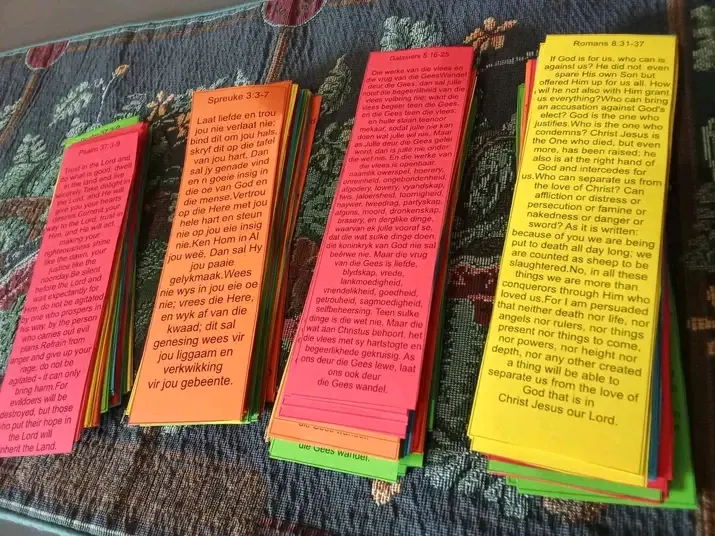 Psalm 37:3-9
Trust in the Lord and
do what is good; dwell
in the land and live
securely. Take delight in
the Lord, and He will
give you your heart's
desires. Commit your
way to the Lord; trust in
Him, and He will act,
making your
righteousness shine
like the dawn, your
justice like the
noonday. Be silent
before the Lord and
wait expectantly for
Him; do not be agitated
by one who prospers in
his way, by the person
who carries out evil
plans. Refrain from
anger and give up your
rage; do not be
agitated - it can only
bring harm. For
evildoers will be
destroyed, but those
who put their hope in
the Lord will
inherit the Land.
Spreuke 3:3-7
Laat liefde en trou
jou nie verlaat nie:
bind dit om jou hals,
skryf dit op die tafel
van jou hart, Dan
sal jy genade vind
en n goeie insig in
die oë van God en
die mense. Vertrou
op die Here met jou
hele hart en steun
nie op jou eie insig
nie. Ken Hom in Al
jou weë, Dan sal Hy
jou paaie
gelykmaak. Wees
nie wys in jou eie oë
nie; vrees die Here,
en wyk af van die
kwaad; dit sal
genesing wees vir
jou liggaam en
verkwikking
vir jou gebeente.
Galasiers 5:16-25
Die werke van die vlees en
die vrug van die GeesWandel
deur die Gees, dan sal julle
nooit die begeerlikheid van die
vlees volbring nie; want die
vlees begeer teen die Gees,
en die Gees teen die vlees;
en hulle staan teenoor
mekaar, sodat julle nie kan
doen wat julle wil nie. Maar
as julle deur die Gees gelei
word, dan is julle nie onder
die wet nie. En die werke van
die vlees is openbaar,
naamlik owerspel, hoerery,
onreinheid, ongebondenheid,
afgodery, towery, vyandskap,
twis, jaloersheid, toornigheid,
naywer, tweedrag, partyskap,
afguns, moord, dronkenskap,
brassery, en dergelike dinge,
waarvan ek julle vooraf sê,
dat die wat sulke dinge doen,
die koninkryk van God nie sal
beërwe nie. Maar die vrug
van die Gees is liefde,
blydskap, vrede,
lankmoedigheid,
vriendelikheid, goedheid,
getrouheid, sagmoedigheid,
selfbeheersing. Teen sulke
dinge is die wet nie. Maar die
wat aan Christus behoort, het
die vlees met sy hartstogte en
begeerlikhede gekruisig. As
ons deur die Gees lewe, laat
ons ook deur
die Gees wandel.
die Gees wandel.
die Gees wandel.
Romans 8:31-37
If God is for us, who can is
against us? He did not even
spare His own Son but
offered Him up for us all. How
wil he not also with Him grant
us everything?Who can bring
an accusation against God's
elect? God is the one who
justifies.Who is the one who
condemns? Christ Jesus is
the One who died, but even
more, has been raised; he
also is at the right hand of
God and intercedes for
us.Who can separate us from
the love of Christ? Can
affliction or distress or
persecution or famine or
nakedness or danger or
sword? As it is written:
because of you we are being
put to death all day long; we
are counted as sheep to be
slaughtered.No, in all these
things we are more than
conquerors through Him who
loved us.For I am persuaded
that neither death nor life, nor
angels nor rulers, nor things
present nor things to come,
nor powers, nor height nor
depth, nor any other created
a thing will be able to
separate us from the love of
God that is in
Christ Jesus our Lord.